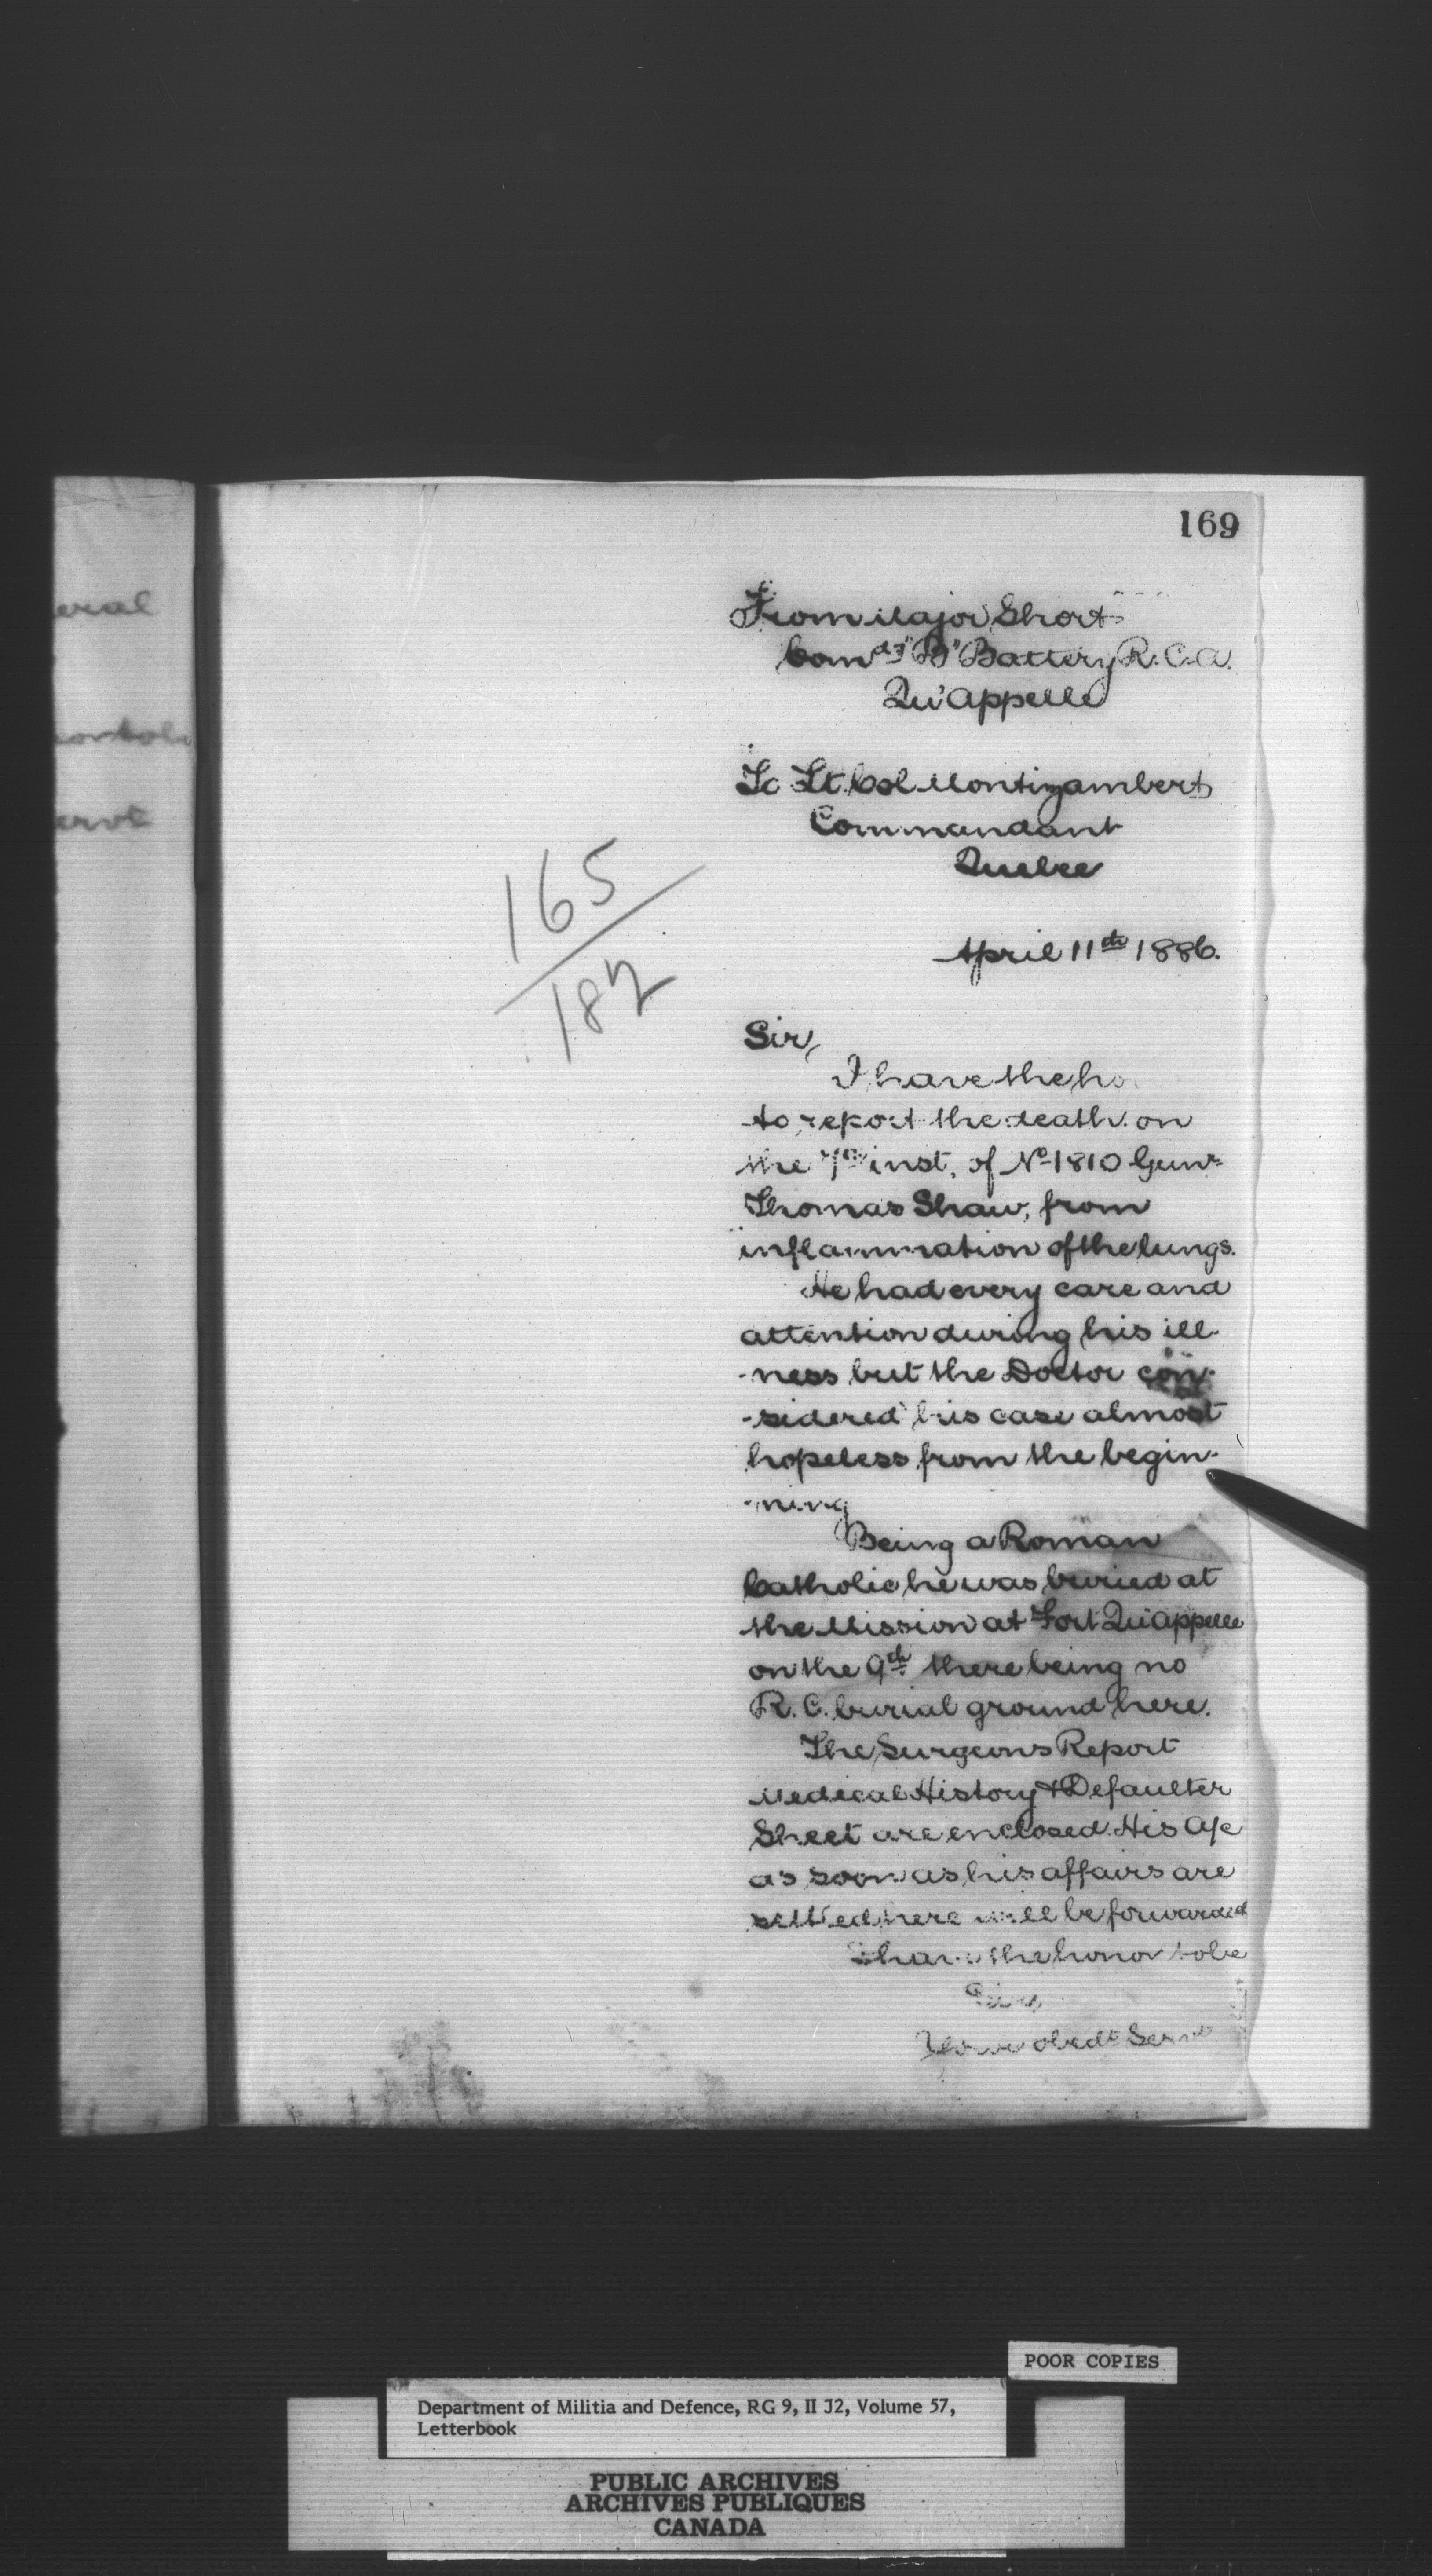 169
eral
ervt
165
182
From Major Short
Comdg "B" Battery R.C.A.
Qu'Appelle
To Lt. Col Montizambert
Commandant
Quebec
April 11th 1886.
Sir,
I have the ho
to report the death on
the 7th inst, of No 1810 Gunr
Thomas Shaw, from
inflammation of the lungs.
He had every care and
attention during his ill-
-ness but the Doctor con-
-sidered his case almost
hopeless from the begin-
-ning
Being a Roman
Catholic he was buried at
the Mission at Fort Qu'Appelle
on the 9th there being no
R.C. burial ground here.
The Surgeons Report
Medical History & Defaulter
Sheet are enclosed. His A/c
as soon as his affairs are
settled here will be forwarded
I have the honor to be
Sir,
Your obedt Servt
POOR COPIES
Department of Militia and Defence, RG 9, II J2, Volume 57,
Letterbook
PUBLIC ARCHIVES
ARCHIVES PUBLIQUES
CANADA